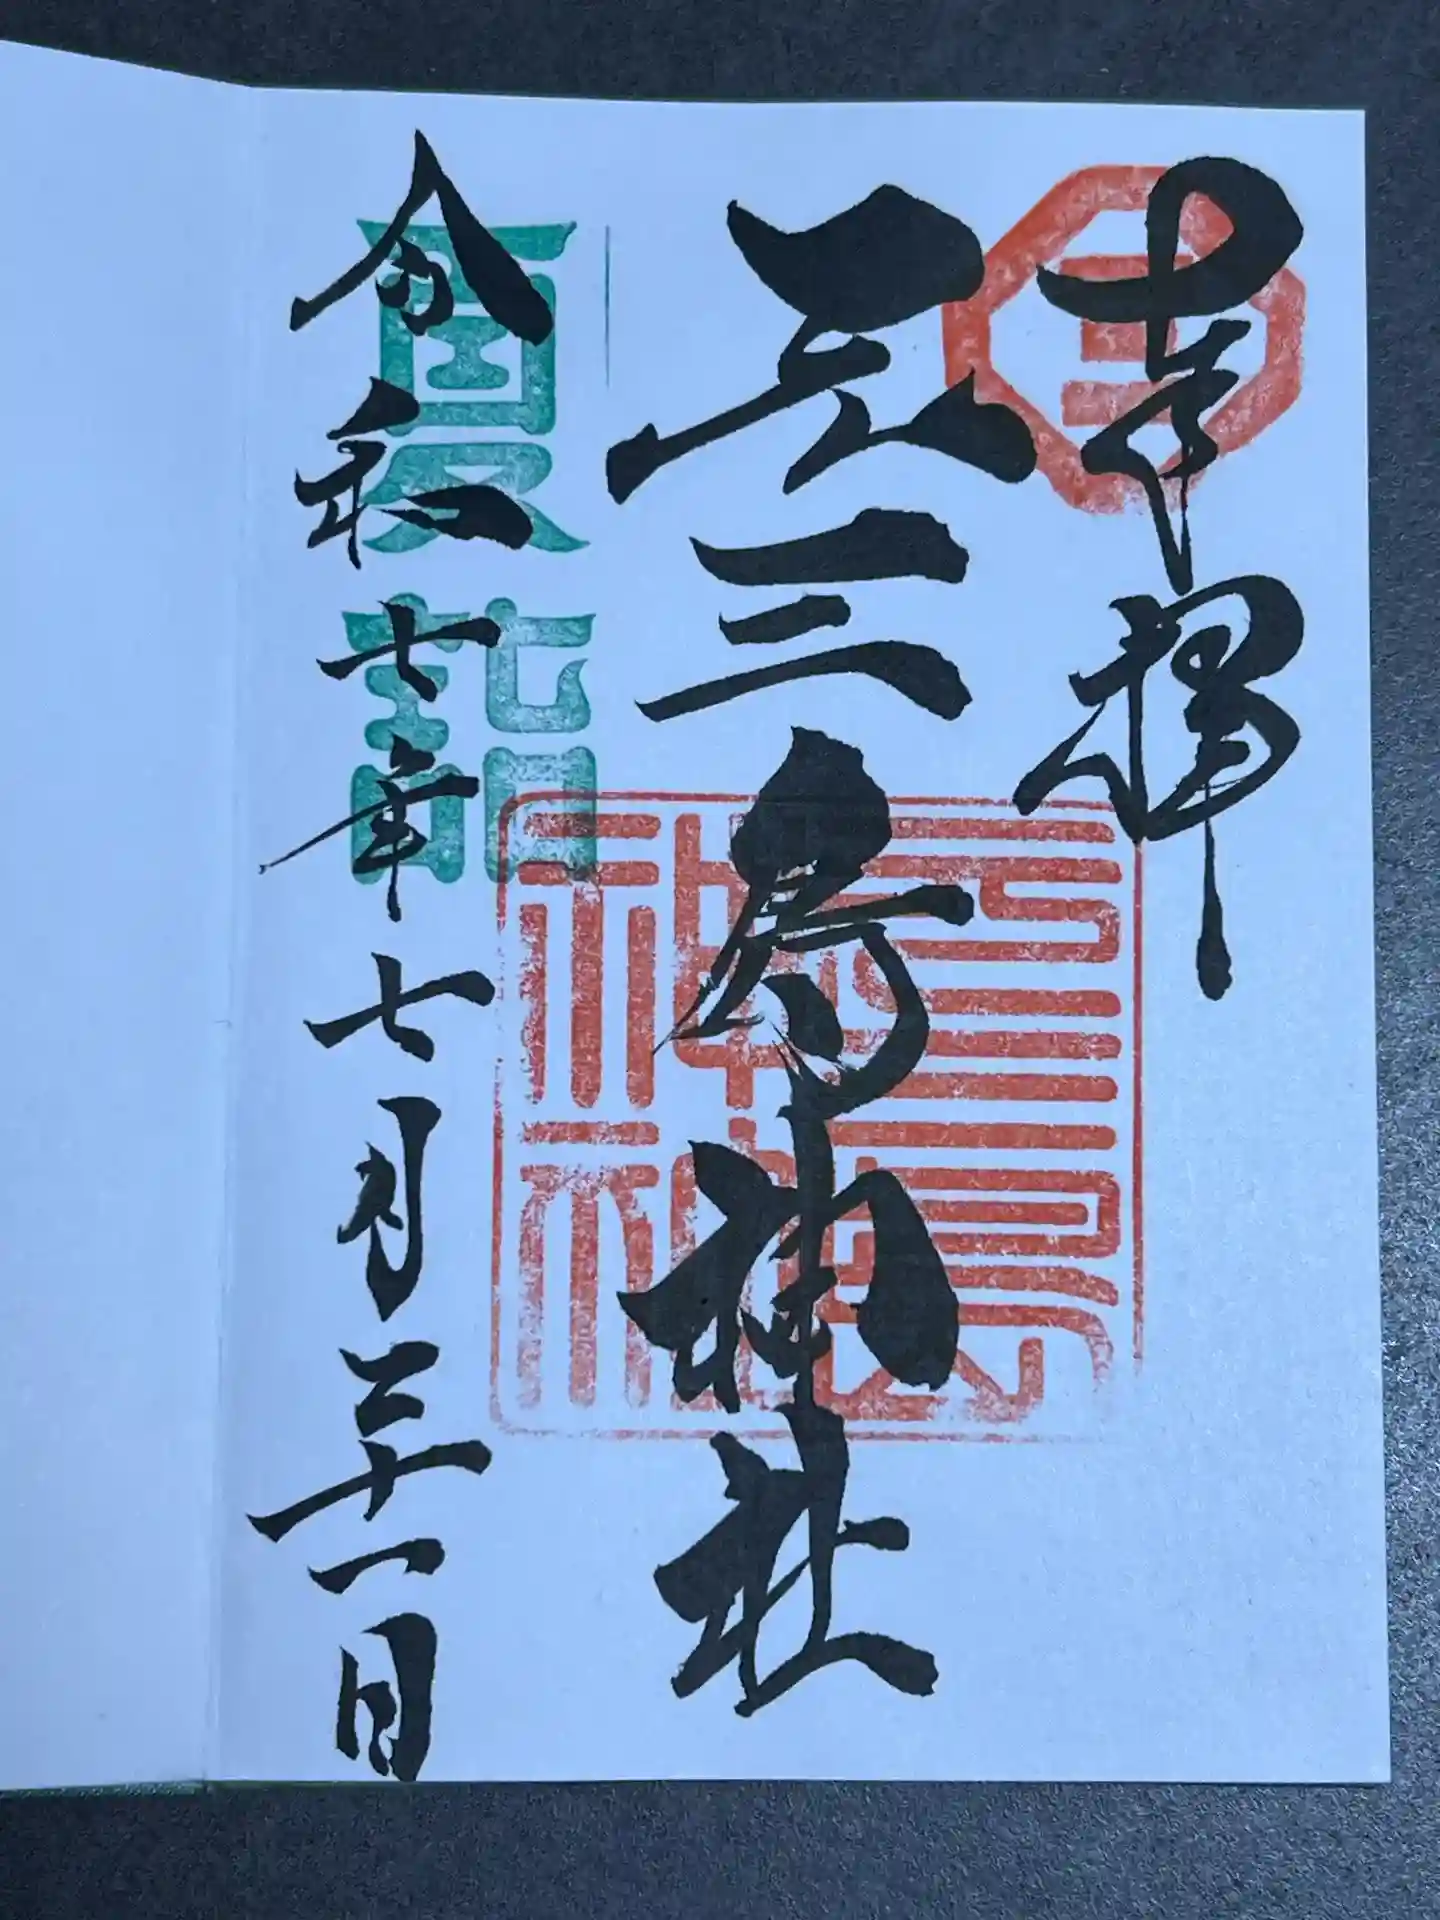 奉拝
元三島神社
令和七年七月三十一日
夏詣
元三島
神社
三